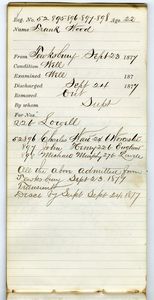 Reg. No. 52,895-896-897-898 Age 22
Name Frank Wood
From Tewksbury Sept 23 1877
Condition Well
Examined Well 187
Discharged Sept 24 1877
Removed Out 187
By whom Supt
For Nos.
226 Lowell
52896 Charles Hart 24 Worcester
897 John Henry 26 England
898 Michael Murphy 27 Lowell
All the above admitted from
Tewksbury Sept 23 1877
Transient
Disch by Supt Sept 24 1877